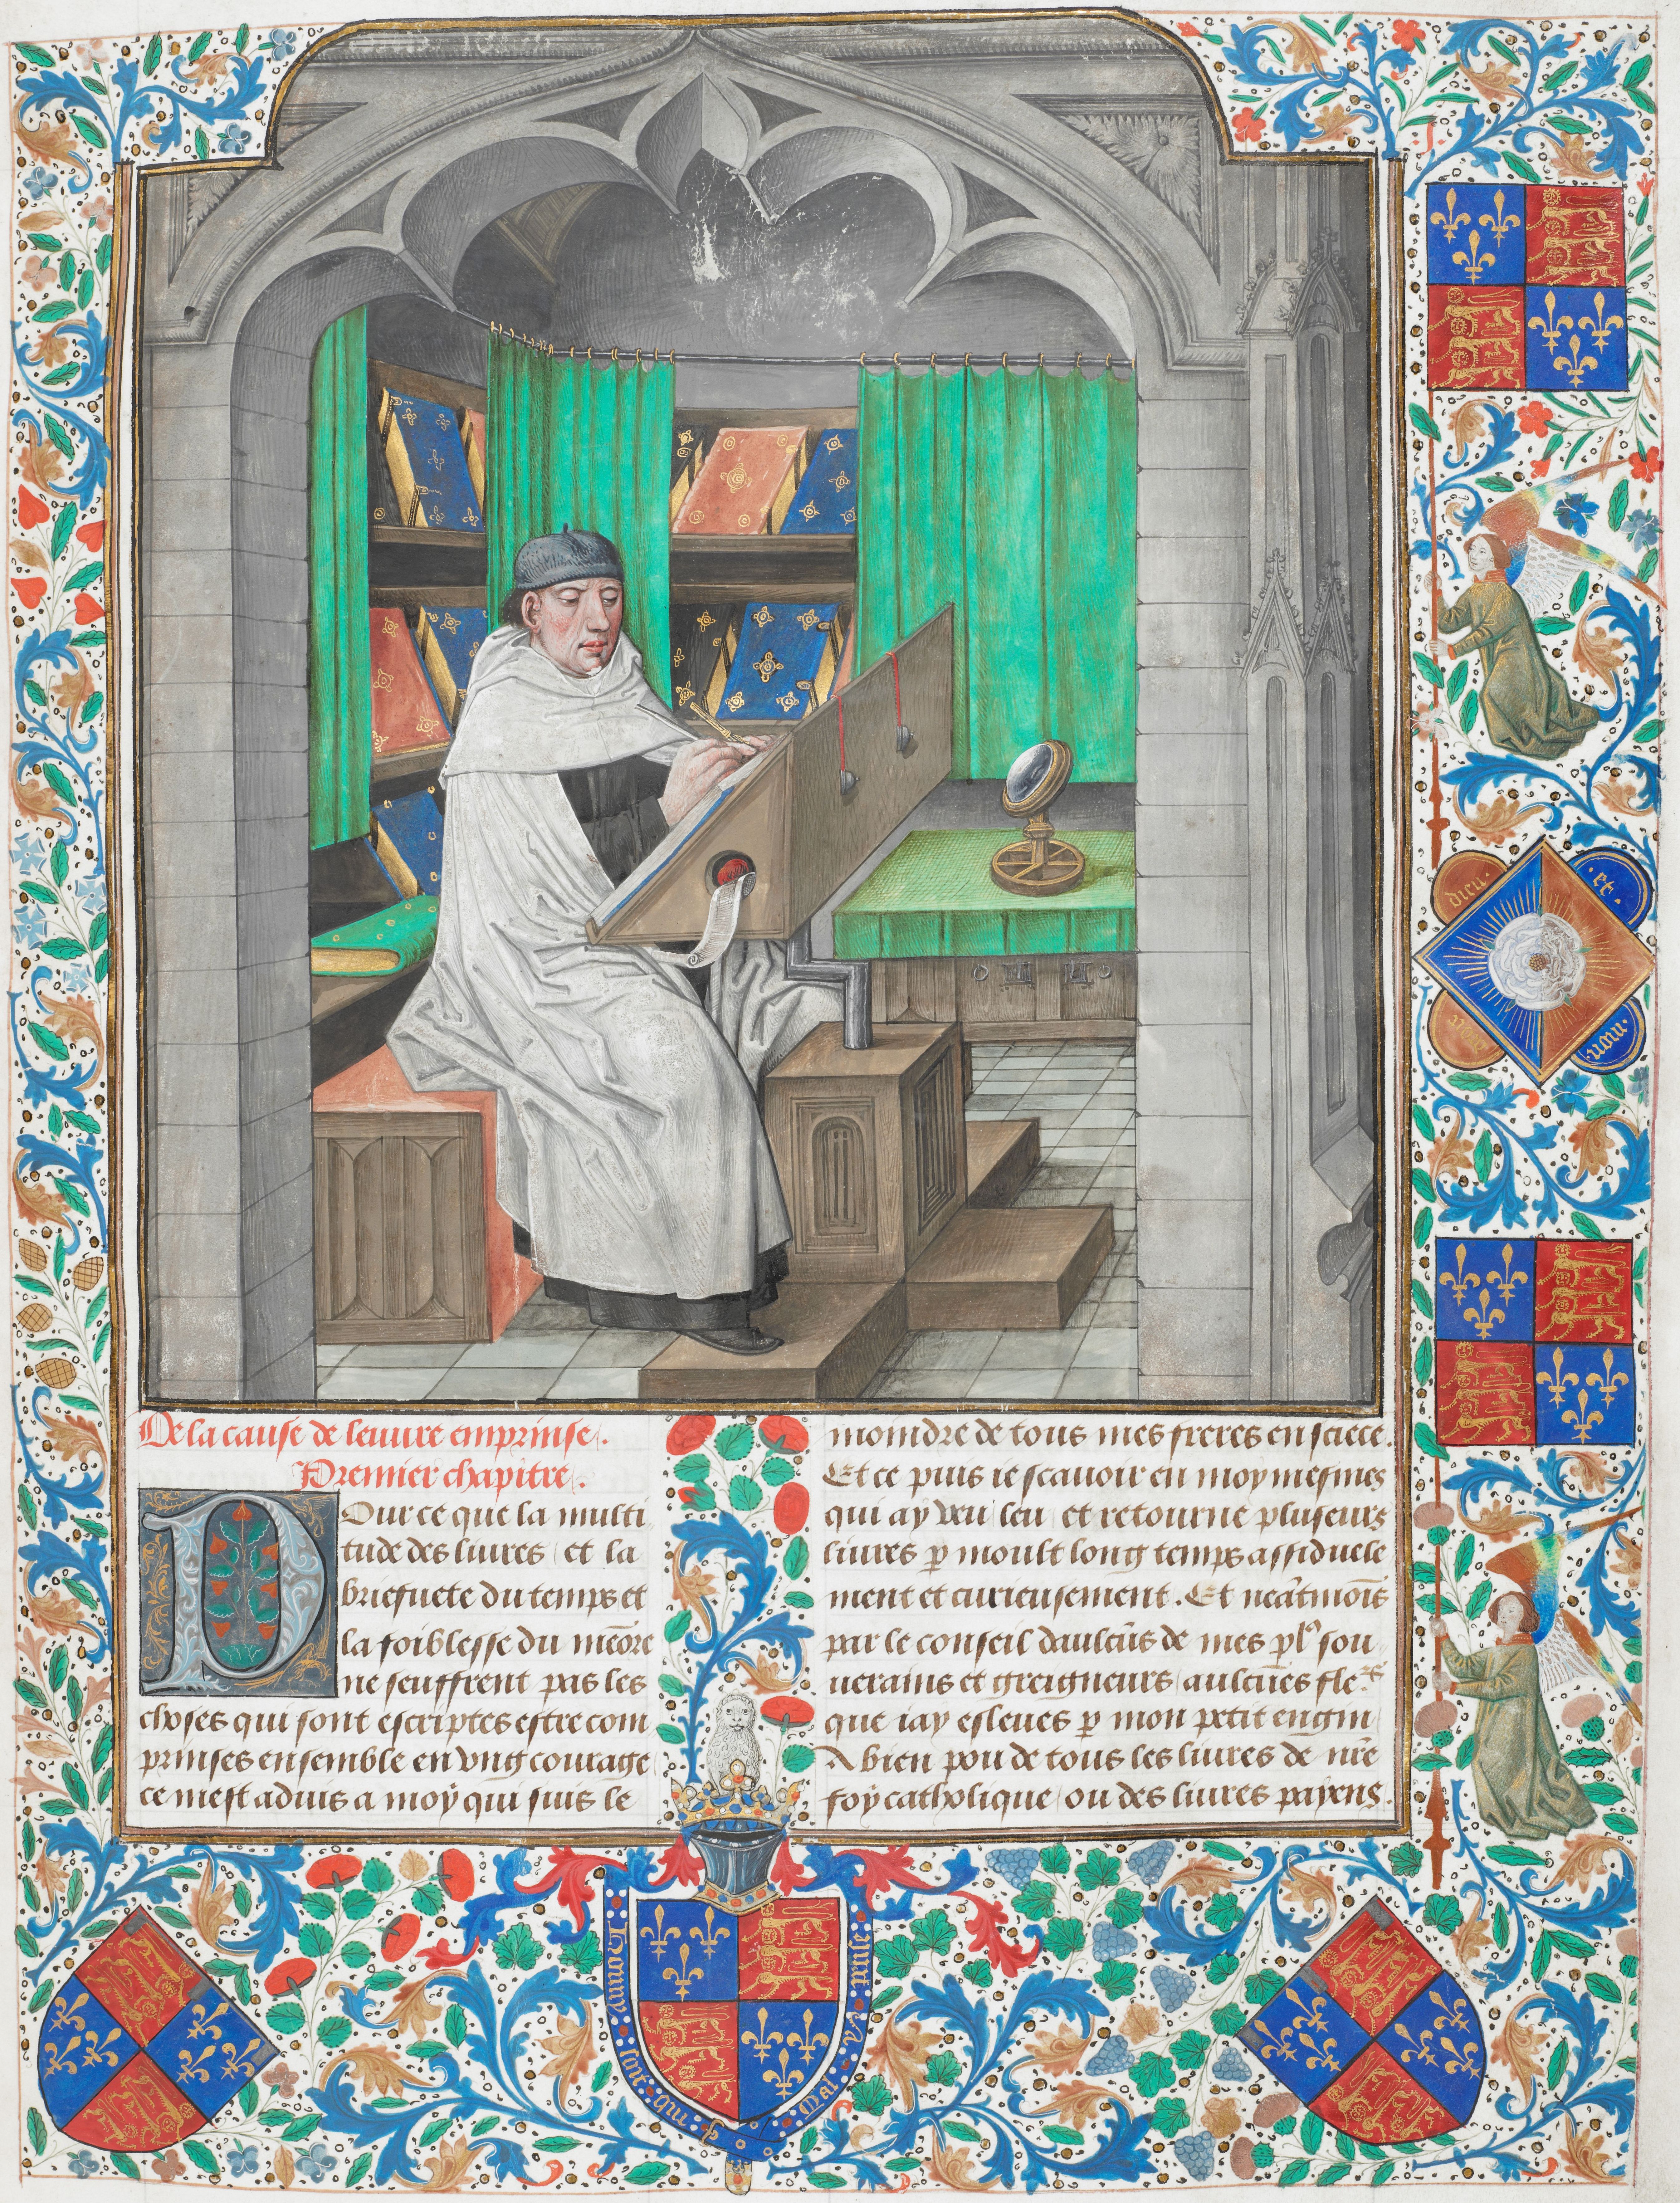 De la cause de leuure emprinse.
Premier chapitre.
Pour ce que la multi
tude des liures et la
briefuete du temps et
la foiblesse du memore
ne seuffrent pas les
choses qui sont escriptes estre com
prinses ensemble en vng courage
ce mest aduis a moÿ qui suis le
moindre de tous mes freres en sciece.
Et ce puis ie scauoir en moy mesmes
qui ay veu leu et retourne pluseurs
liures p moult long temps assiduele
ment et curieusement. Et neatmois
par le conseil daulcus de mes pl9 sou
uerains et greigneurs aulcunes fle.rs
que iay esleues p mon petit engin
A bien pou de tous les liures de nre
foy catholique ou des liures payens.
dieu. et.
mon
honny soit qui mal y pense